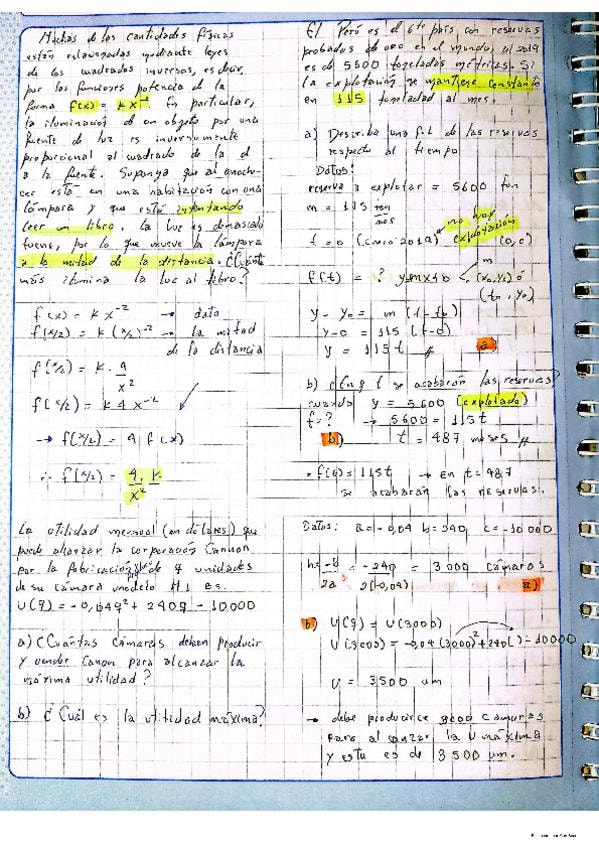 Muchas de las cantidades físicas
están relacionadas mediante leyes
de los cuadrados inversos, es decir,
por las funciones potencia de la
forma f(x) = k x⁻². En particular,
la iluminación de un objeto por una
fuente de luz es inversamente
proporcional al cuadrado de la d
a la fuente. Suponga que al anoche-
cer está en una habitación con una
lámpara y que está intentando
leer un libro. La luz es demasiado
fuente, por lo que mueve la lámpara
a la mitad de la distancia. ¿Cuánto
más ilumina la luz al libro?
f(x) = k x⁻² → dato
f(x/2) = k (x/2)⁻² → la mitad
de la distancia
f(x/2) = k · 4/x²
f(x/2) = k 4 x⁻²
→ f(x/2) = 4 f(x)
∴ f(x/2) = 4. k/x²
La utilidad mensual (en dólares) que
puede alcanzar la corporación Cannon
por la fabricación de q unidades
de su cámara modelo H1 es.
U(q) = -0,04q² + 240q - 10000
a) ¿Cuántas cámaras deben producir
y vender Canon para alcanzar la
máxima utilidad?
b) ¿Cuál es la utilidad máxima?
E/ Perú es el 6to país con reservas
probados de oro en el mundo, al 2019
es de 5600 toneladas métricas. Si
la explotación se mantiene constante
en 115 tonelada al mes.
a) Describa una f.L de las reservas
respecto al tiempo
Datos:
reserva a explotar = 5600 ton
m = 115 ton/mes
no hay
t = 0 (inicio 2019) explotación (0,0)
f(t) = ? y=mx+b m (x₀,y₀) ó
(t₀, y₀)
y - y₀ = m (t - t₀)
y - 0 = 115 (t - 0)
y = 115t a)
b) ¿En q t se acabarán las reservas?
cuando y = 5600 (explotado)
t = ? → 5600 = 115t
b) t = 487 meses
• f(t) = 115t → en t = 487
se acabarán las reservas.
Datos: a = -0,04 b = 240 c = -10000
h = -b/2a = -240/2(-0,04) = 3000 cámaras a)
b) U(q) = U(3000)
U(3000) = -0,04 (3000)² + 240( ) - 10000
U = 3500 um
→ debe producirce 3000 camaras
para alcanzar la U máxima
y esta es de 3500 um.